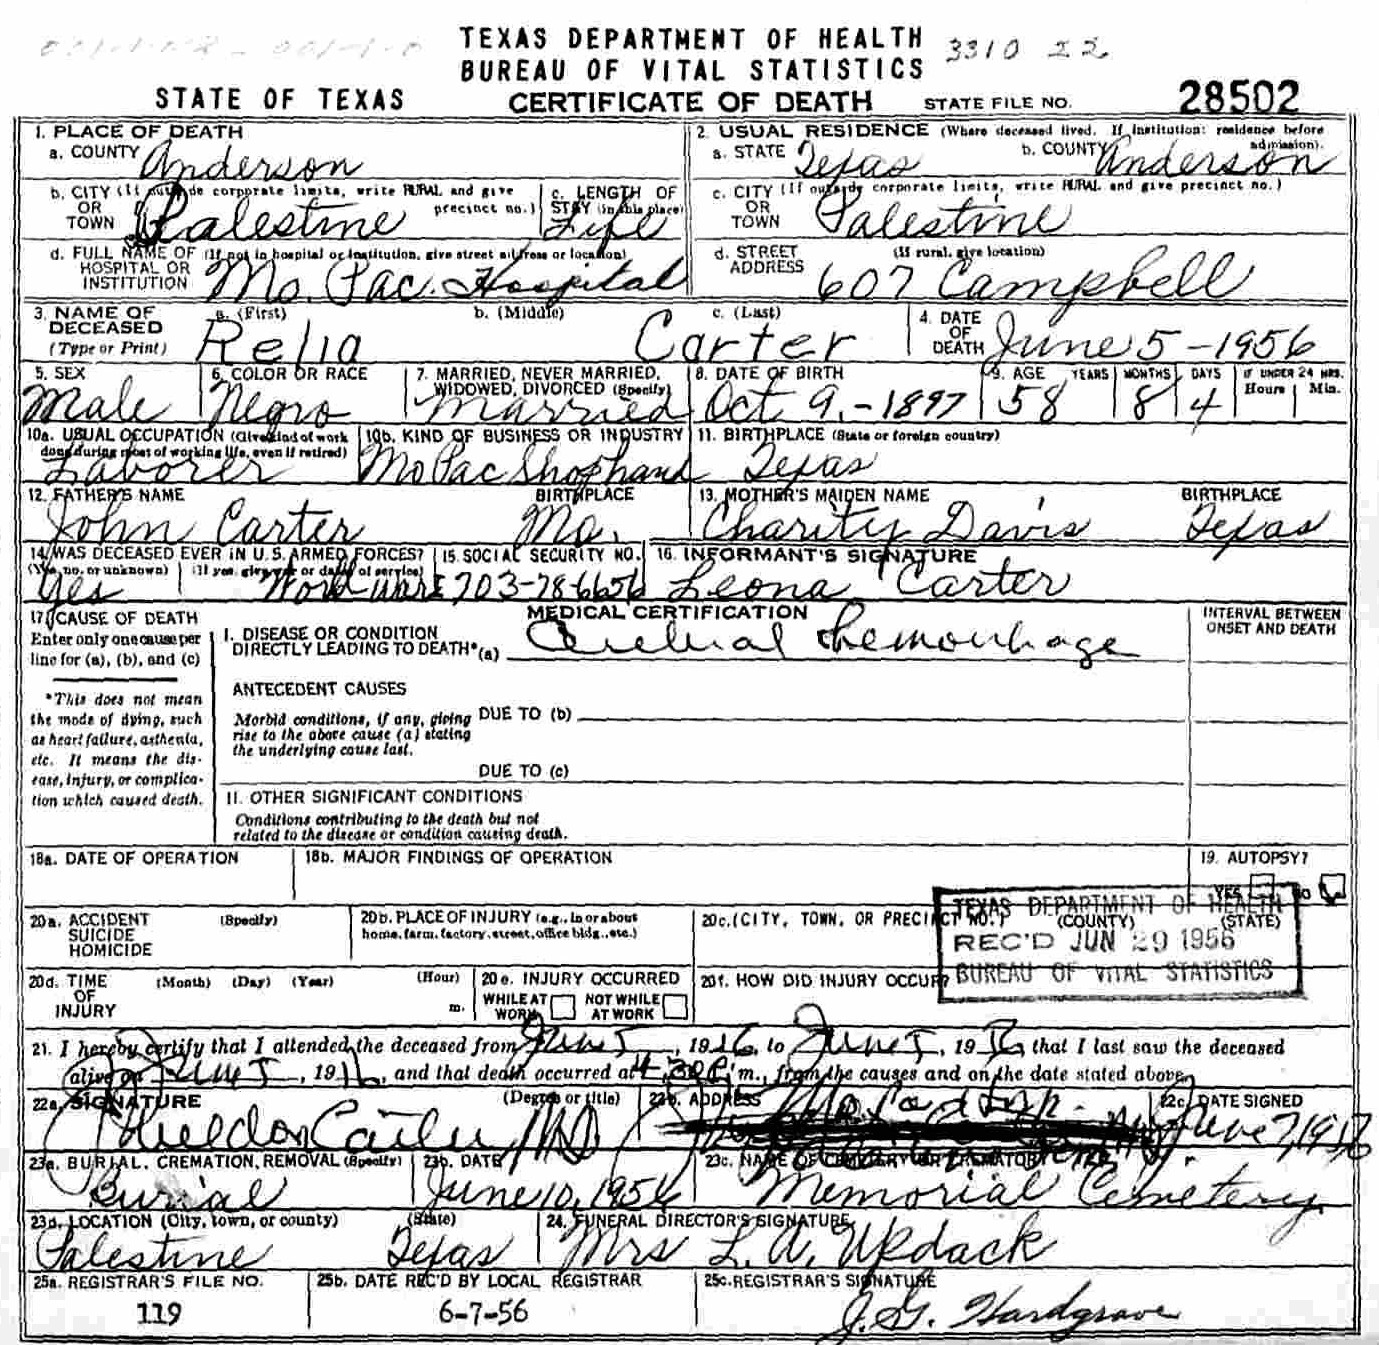 TEXAS DEPARTMENT OF HEALTH 3310
BUREAU OF VITAL STATISTICS
STATE OF TEXAS CERTIFICATE OF DEATH STATE FILE NO. 28502
1. PLACE OF DEATH
a. COUNTY Anderson
2. USUAL RESIDENCE (Where deceased lived. If institution: residence before admission).
a. STATE Texas b. COUNTY Anderson
b. CITY (If outside corporate limits, write RURAL and give precinct no.) OR TOWN Palestine
c. LENGTH OF STAY (in this place) Life
c. CITY (If outside corporate limits, write RURAL and give precinct no.) OR TOWN Palestine
d. FULL NAME OF HOSPITAL OR INSTITUTION (If not in hospital or institution, give street address or location) Mo. Pac. Hospital
d. STREET ADDRESS (If rural, give location) 607 Campbell
3. NAME OF DECEASED (Type or Print) a. (First) Relia b. (Middle) c. (Last) Carter
4. DATE OF DEATH June 5-1956
5. SEX Male
6. COLOR OR RACE Negro
7. MARRIED, NEVER MARRIED, WIDOWED, DIVORCED (Specify) Married
8. DATE OF BIRTH Oct. 9,-1897
9. AGE YEARS 58 MONTHS 8 DAYS 4 IF UNDER 24 HRS. Hours Min.
10a. USUAL OCCUPATION (Give kind of work done during most of working life, even if retired) Laborer
10b. KIND OF BUSINESS OR INDUSTRY Mo Pac Shophand
11. BIRTHPLACE (State or foreign country) Texas
12. FATHER'S NAME John Carter BIRTHPLACE Mo.
13. MOTHER'S MAIDEN NAME Charity Davis BIRTHPLACE Texas
14. WAS DECEASED EVER IN U.S. ARMED FORCES? (Yes, no, or unknown) Yes (If yes, give war or dates of service) World War I
15. SOCIAL SECURITY NO. 703-
16. INFORMANT'S SIGNATURE Leona Carter
17. CAUSE OF DEATH
Enter only one cause per line for (a), (b), and (c)
*This does not mean the mode of dying, such as heart failure, asthenia, etc. It means the disease, injury, or complication which caused death.
MEDICAL CERTIFICATION
INTERVAL BETWEEN ONSET AND DEATH
I. DISEASE OR CONDITION DIRECTLY LEADING TO DEATH* (a) Cerebral hemorrhage
ANTECEDENT CAUSES
Morbid conditions, if any, giving rise to the above cause (a) stating the underlying cause last.
DUE TO (b)
DUE TO (c)
II. OTHER SIGNIFICANT CONDITIONS
Conditions contributing to the death but not related to the disease or condition causing death.
18a. DATE OF OPERATION
18b. MAJOR FINDINGS OF OPERATION
19. AUTOPSY? YES NO
20a. ACCIDENT SUICIDE HOMICIDE (Specify)
20b. PLACE OF INJURY (e.g., in or about home, farm, factory, street, office bldg., etc.)
20c. (CITY, TOWN, OR PRECINCT NO.) (COUNTY) (STATE)
TEXAS DEPARTMENT OF HEALTH
REC'D JUN 29 1956
BUREAU OF VITAL STATISTICS
20d. TIME OF INJURY (Month) (Day) (Year) (Hour) m.
20e. INJURY OCCURRED WHILE AT WORK NOT WHILE AT WORK
20f. HOW DID INJURY OCCUR?
21. I hereby certify that I attended the deceased from June 5, 1956, to June 5, 1956, that I last saw the deceased
alive on June 5, 1956, and that death occurred at 4:30 P. m., from the causes and on the date stated above.
22a. SIGNATURE (Degree or title) MD
22b. ADDRESS
22c. DATE SIGNED June 7, 1956
23a. BURIAL, CREMATION, REMOVAL (Specify) Burial
23b. DATE June 10, 1956
23c. NAME OF CEMETERY OR CREMATORY Memorial Cemetery
23d. LOCATION (City, town, or county) (State) Palestine Texas
24. FUNERAL DIRECTOR'S SIGNATURE Mrs L. A. Updack
25a. REGISTRAR'S FILE NO. 119
25b. DATE REC'D BY LOCAL REGISTRAR 6-7-56
25c. REGISTRAR'S SIGNATURE J. G. Hardgrave